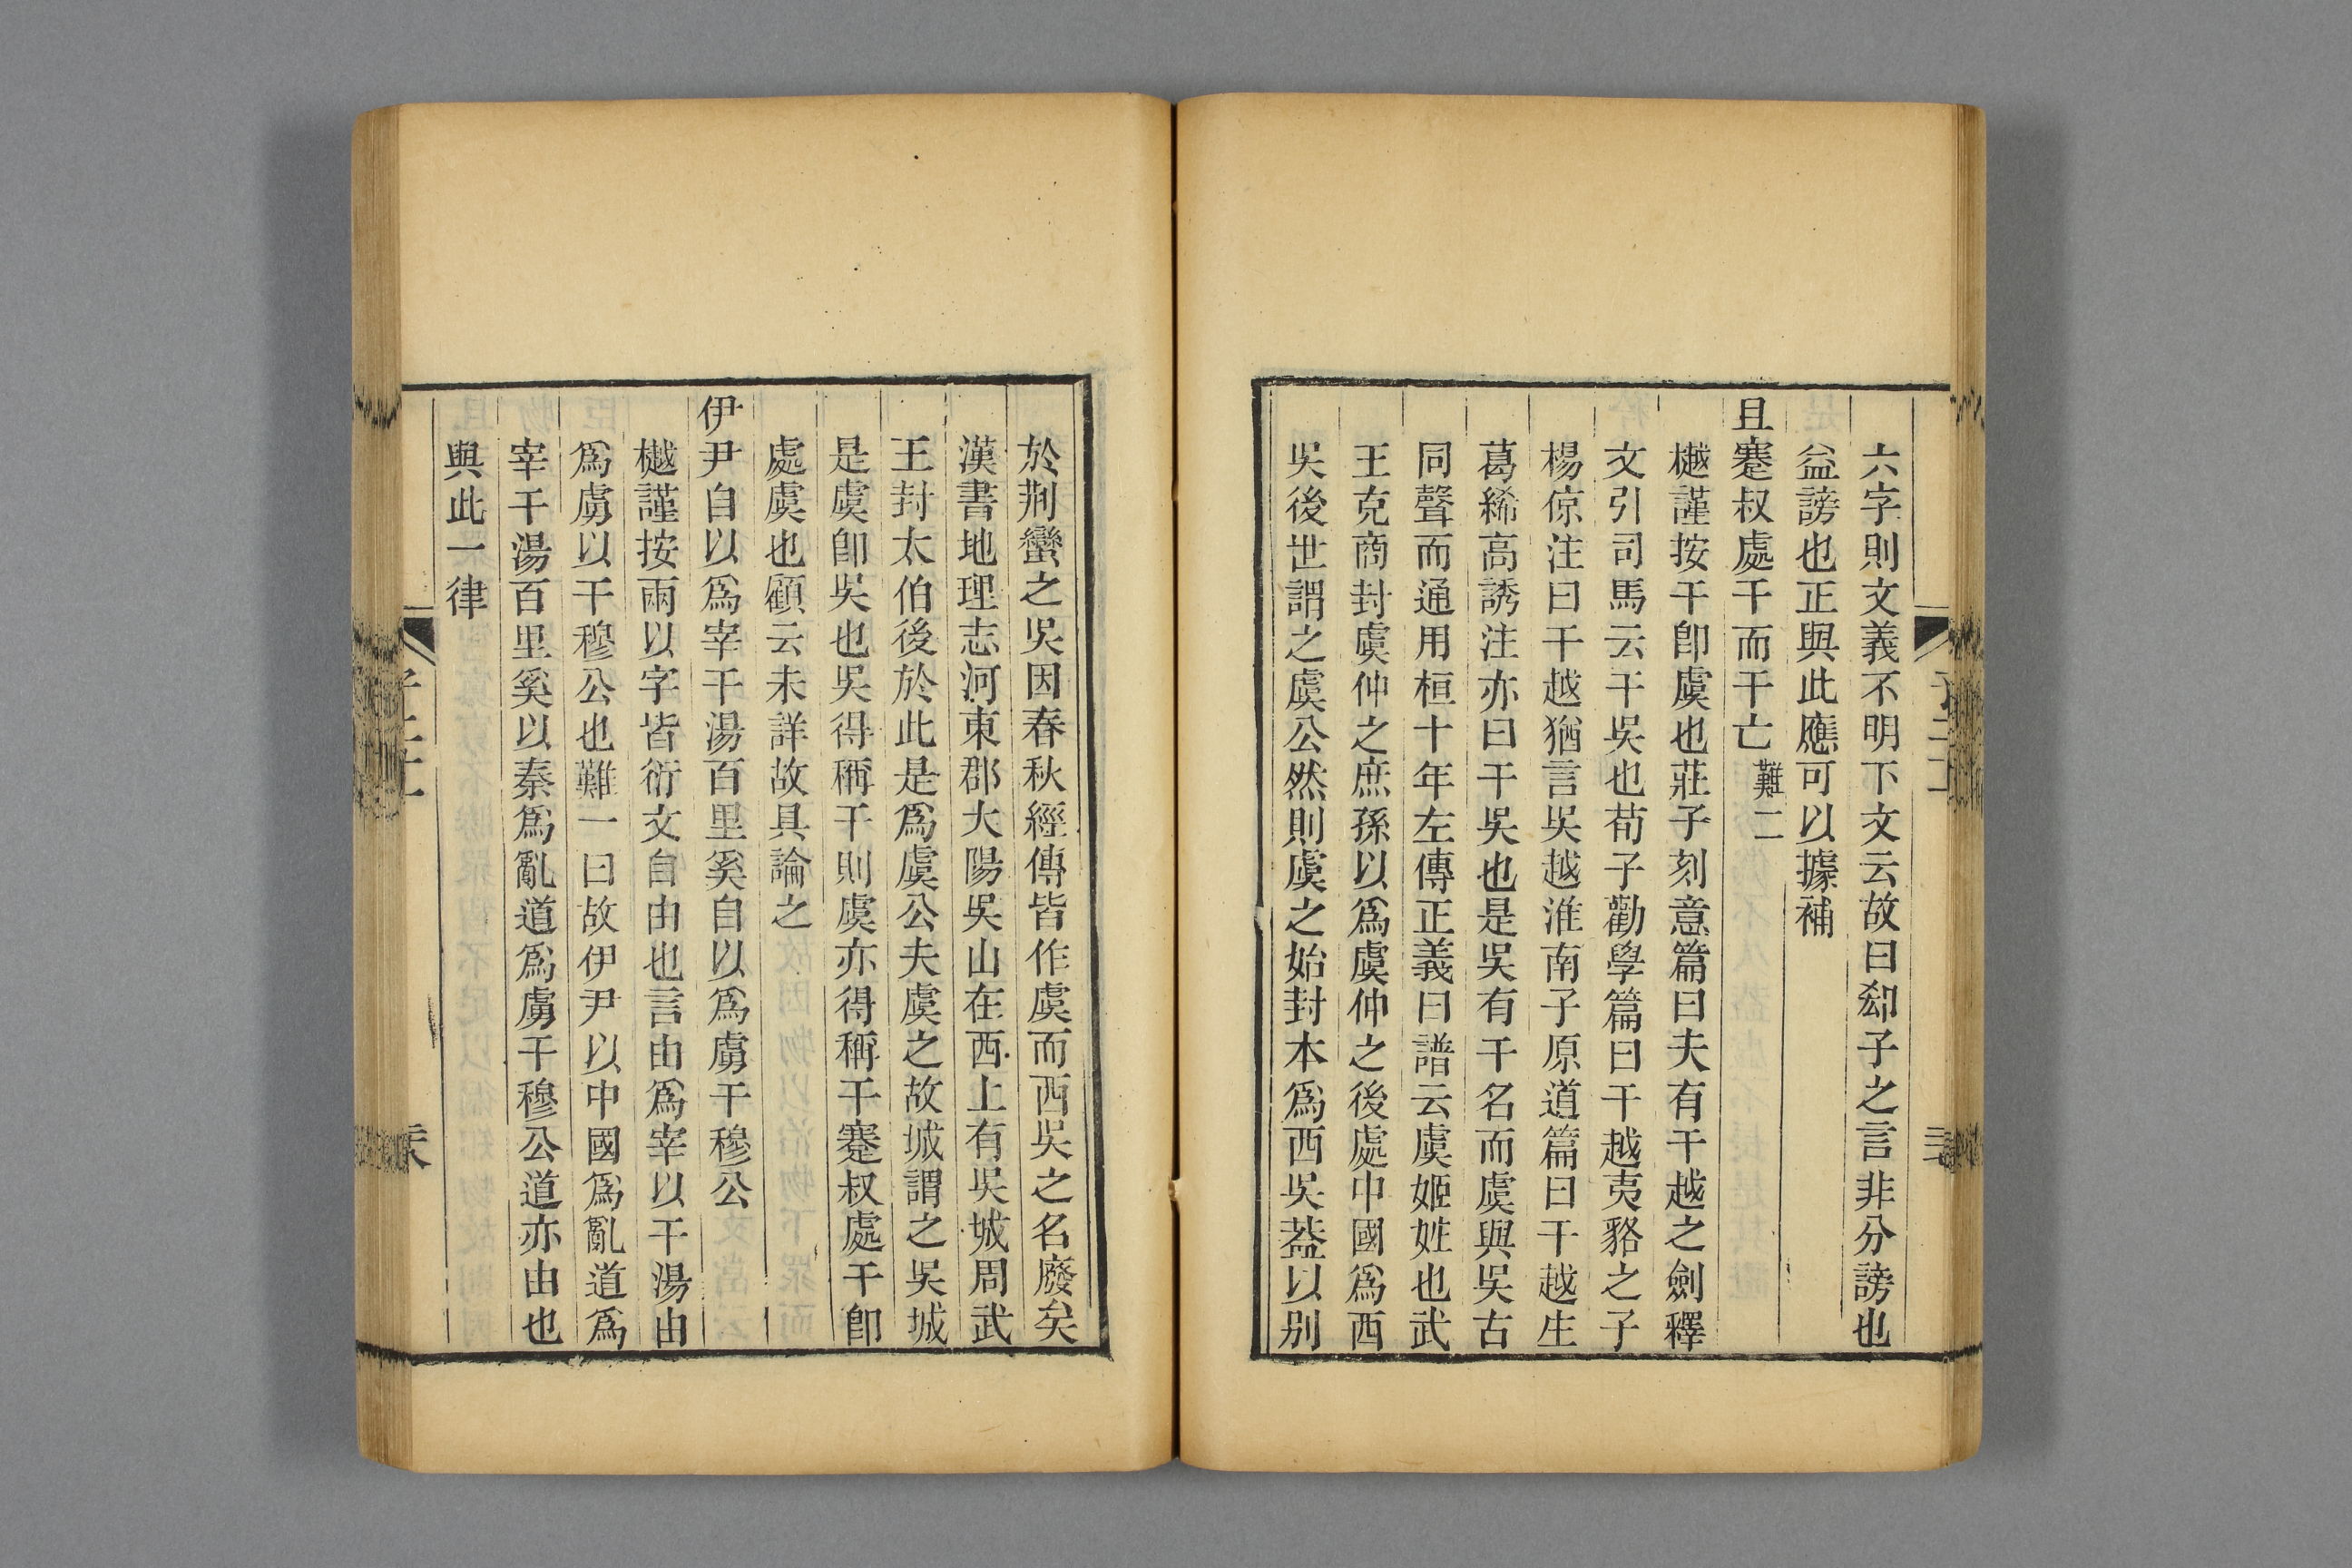 六字則文義不明下文云故曰郄子之言非分謗也
益謗也正與此應可以據補
且蹇叔處干而干亡難二
樾謹按干卽虞也莊子刻意篇曰夫有干越之劍釋
文引司馬云干吳也荀子勸學篇曰干越夷貉之子
楊倞注曰干越猶言吳越淮南子原道篇曰干越生
葛絺高誘注亦曰干吳也是吳有干名而虞與吳古
同聲而通用桓十年左傳正義曰譜云虞姬姓也武
王克商封虞仲之庶孫以爲虞仲之後處中國爲西
吳後世謂之虞公然則虞之始封本爲西吳葢以别
於荆蠻之吳因春秋經傳皆作虞而西吳之名廢矣
漢書地理志河東郡大陽吳山在西上有吳城周武
王封太伯後於此是爲虞公夫虞之故城謂之吳城
是虞卽吳也吳得稱干則虞亦得稱干蹇叔處干卽
處虞也顧云未詳故具論之
伊尹自以爲宰干湯百里奚自以爲虜干穆公
樾謹按兩以字皆衍文自由也言由爲宰以干湯由
爲虜以干穆公也難一曰故伊尹以中國爲亂道爲
宰干湯百里奚以秦爲亂道爲虜干穆公道亦由也
與此一律